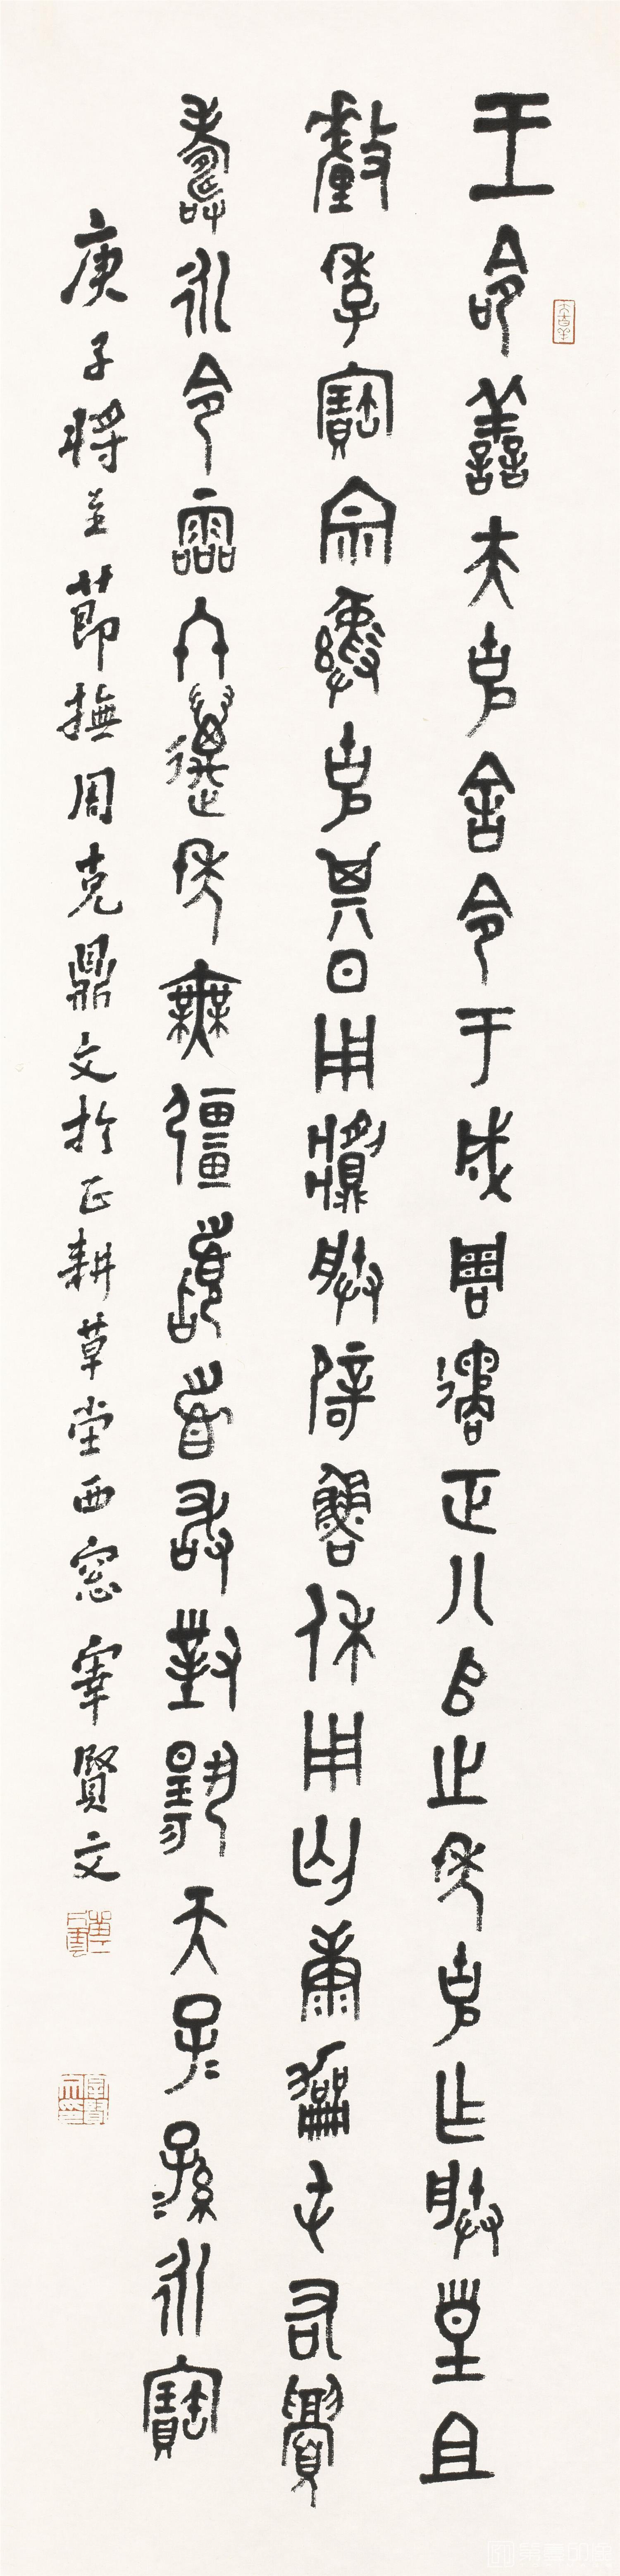 王命譱夫克舍令于成周遹正八𠂤之年克乍朕皇且
釐季寶宗彝克其日用䵼朕辟魯休用匄康屯右眉
壽永令霝冬邁年無彊䭫首敢對揚天子=孫=永寶
庚子將至節撫周克鼎文於正耕草堂西窓宰賢文